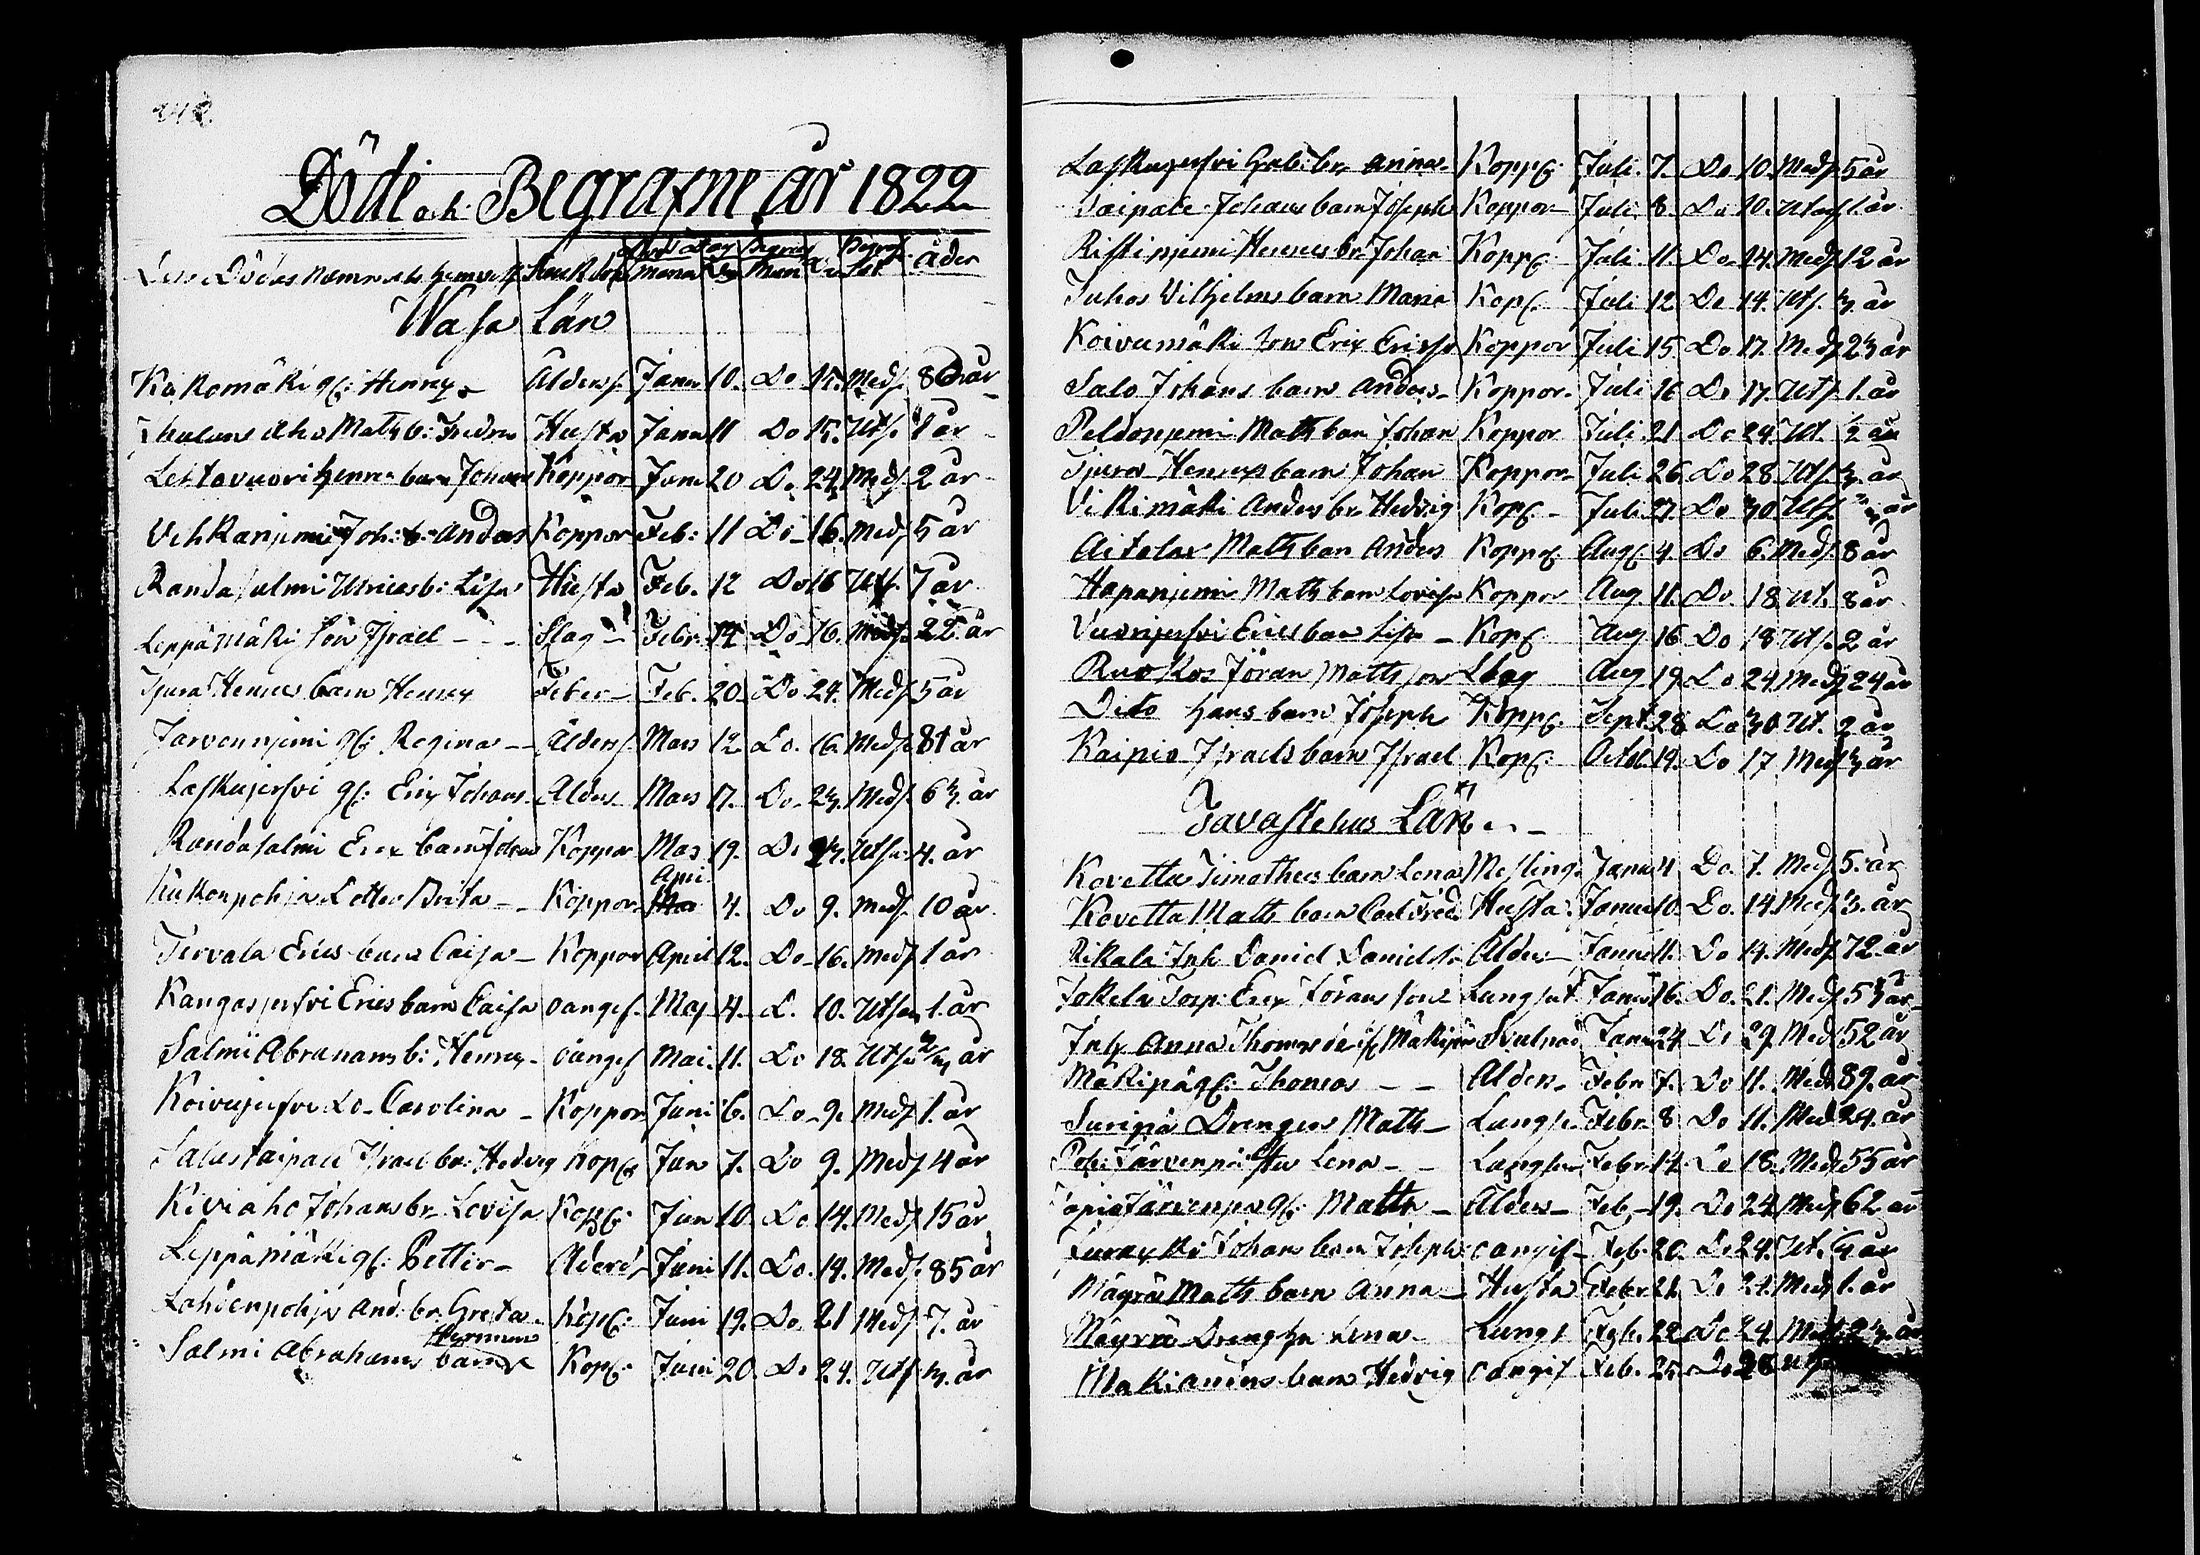 242
Döde och Begrafne år 1822
Död Dag Begraf Begraf
De Dödas Namn och hemvist Siukdom Månad Dag Mån D. Sat åder
Wasa Län
Kukomäki gf: Henry Ålders. Janu 10. Do 15. Meds. 80 år
Aho Math b: Fredric Husta Janu 11 Do 15. Uts. 1 år
Lehtavuori Henrics barn Johan Koppor Janu 20 Do 24. Meds. 2 år
Vehkaniemi Joh: b: Anders Koppor Feb: 11 Do 16. Meds 5 år
Randasalmi Ulricas b: Lisa Husta Feb. 12 Do 16 Uts. 7 år
Leppämäki son Israel - - - Slag Febr. 14 Do 16. Meds. 22 år
Tjura Henrics barn Henric Feber Feb. 20. Do 24. Meds. 5 år
Jarvenniemi gf: Regina - Ålders. Mars 12 Do. 16. Meds. 81 år
Laskujerfvi gf: Eric Johans. Alders Mars 17. Do 23. Meds. 63. år
Randasalmi Eric barn Johan Koppor Mars 19. Do 23. Uts. 4. år
Kukonpohja Lotter Brita - Koppor April 4. Do 9. Meds. 10 år
Tervala Erics barn Caisa Koppor April 12. Do 16. Meds 1 år
Kangasjerfvi Erics barn Caisa oangif. Maj 4. D. 10. Uts 1. år
Salmi Abrahams b: Henric oangif Mai. 11. Do 18. Uts år
Koivujerfvi Lo- Carolina - Koppor Juni 6. Do 9. Meds. 1. år
Salustaipale Israel bn: Hedvig Kopp: Jun 7. Do 9. Meds 4 år
Kiviaho Johans br. Lovisa Kopp: Jun 10. Do 14. Meds. 15 år
Leppämäki gf: Petter - Åderd. Juni 11. Do. 14. Meds. 85 år
Lahdenpohja And: br. Greta. Kopp: Juni 19. Do 21 Meds. 7. år
Salmi Abrahams barn Herman Kopp: Juni 20. Do 24. Uts 3. år
Laskujerfvi Gab: br. Anna Kopp: Juli. 7. Do 10. Meds 5 år
Taipale Johans barn Joseph Koppor Juli 8. Do 10. Uts 1. år
Ristiniemi Henrics br. Johan Kopp: Juli 11. Do 14. Meds 12 år
Juhos Vilhelms barn Maria Kop: Juli 12. Do 14. Uts. 3. år
Koivumäki son Eric Ericss. Koppor Juli 15. Do 17. Meds 23 år
Salo Johans barn Anders Koppor. Juli 16 Do 17. Uts. 1. år
Peldoniemi Math barn Johan Koppor Juli 21. Do 24. Ut. 1/2 år
Tjura Henrics barn Johan Koppor. Juli 26. Do 28. Uts. 3. år
Vikimäki Anders br Hedvig Kop: Juli 27. Do 30. Uts. år
Aitolax Math barn Anders Kopp: Aug: 4. Do 6. Meds. 8 år
Hapaniemi Math barn Lovisa Koppor Aug. 11. Do. 18 Ut. 8 år
Vuorijerfvi Erics barn Lisa - Kop: Aug 16. Do 18 Uts. 2 år
Ruokos Jöran Mattsson Slag Aug 19. Do 24 Meds 24 år
Dito Hans barn Joseph Kopp: Sept 28 Do 30 Ut. 2 år
Kaipio Israels barn Israel Kop: Octob. 14. Do 17 Meds 3 år
Tavastehus Län
Kovetta Timotheus barn Lena Mesling. Janu 4. Do. 7. Meds. 5. år
Kovetta Math barn Carl Fred. Husta. Janu 10. Do. 14. Meds. 3. år
Rikala Inh Daniel Daniels. Alder Janu 11. Do 14. Meds. 72. år
Jokela Torp: Eric Jörans son Lungsot Janu 16. Do. 21. Meds 53 år
Inh Anna Thomasd. Mäkipä Svulnad Janu 24. Do 29. Meds 52 år
Mäkipä gf: Thomas - - Alder. Febr. 7. Do 11. Meds 89. år
Suripä Drengen Math - Lungs. Febr. 8 Do 11. Meds 24. år
Järvenpä Hu Lena - - Lungsu Febr 14. Do 18. Meds 55 år
Tapio Järvenpä gf: Matth - Alder - Feb. 19. Do 24 Meds 62 år
Johan barn Joseph oangif Feb. 20. Do 24. Ut. år
Mägrä Math barn Anna - Husta Febr 21. Do 24. Meds 1. år
Mägrä Drengh Lena - Lungs Feb. 22 Do 24 Meds 23. år
Makiainens barn Hedvig oangif Feb. 25. Do 28 Uts